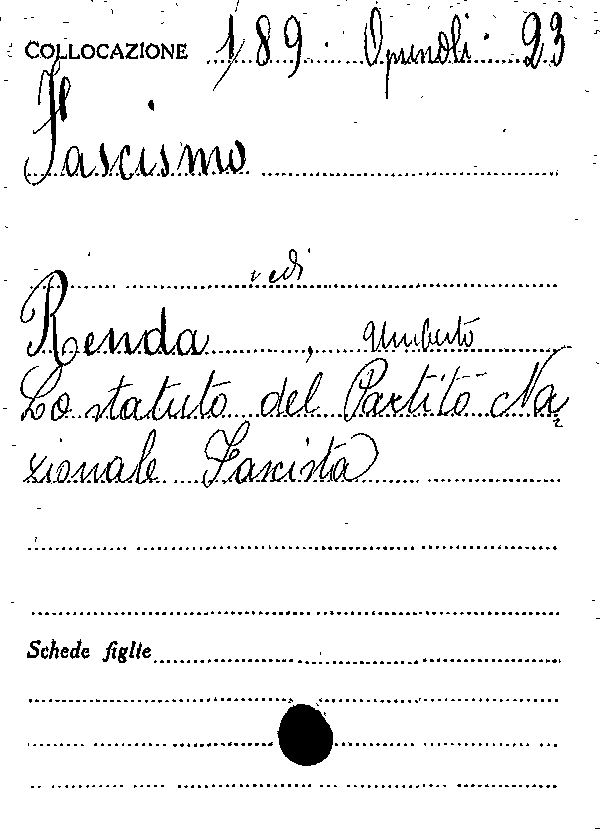 COLLOCAZIONE 189. Opuscoli. 23
Fascismo
vedi
Renda, Umberto
Lo statuto del Partito Na
zionale Fascista
Schede figlie